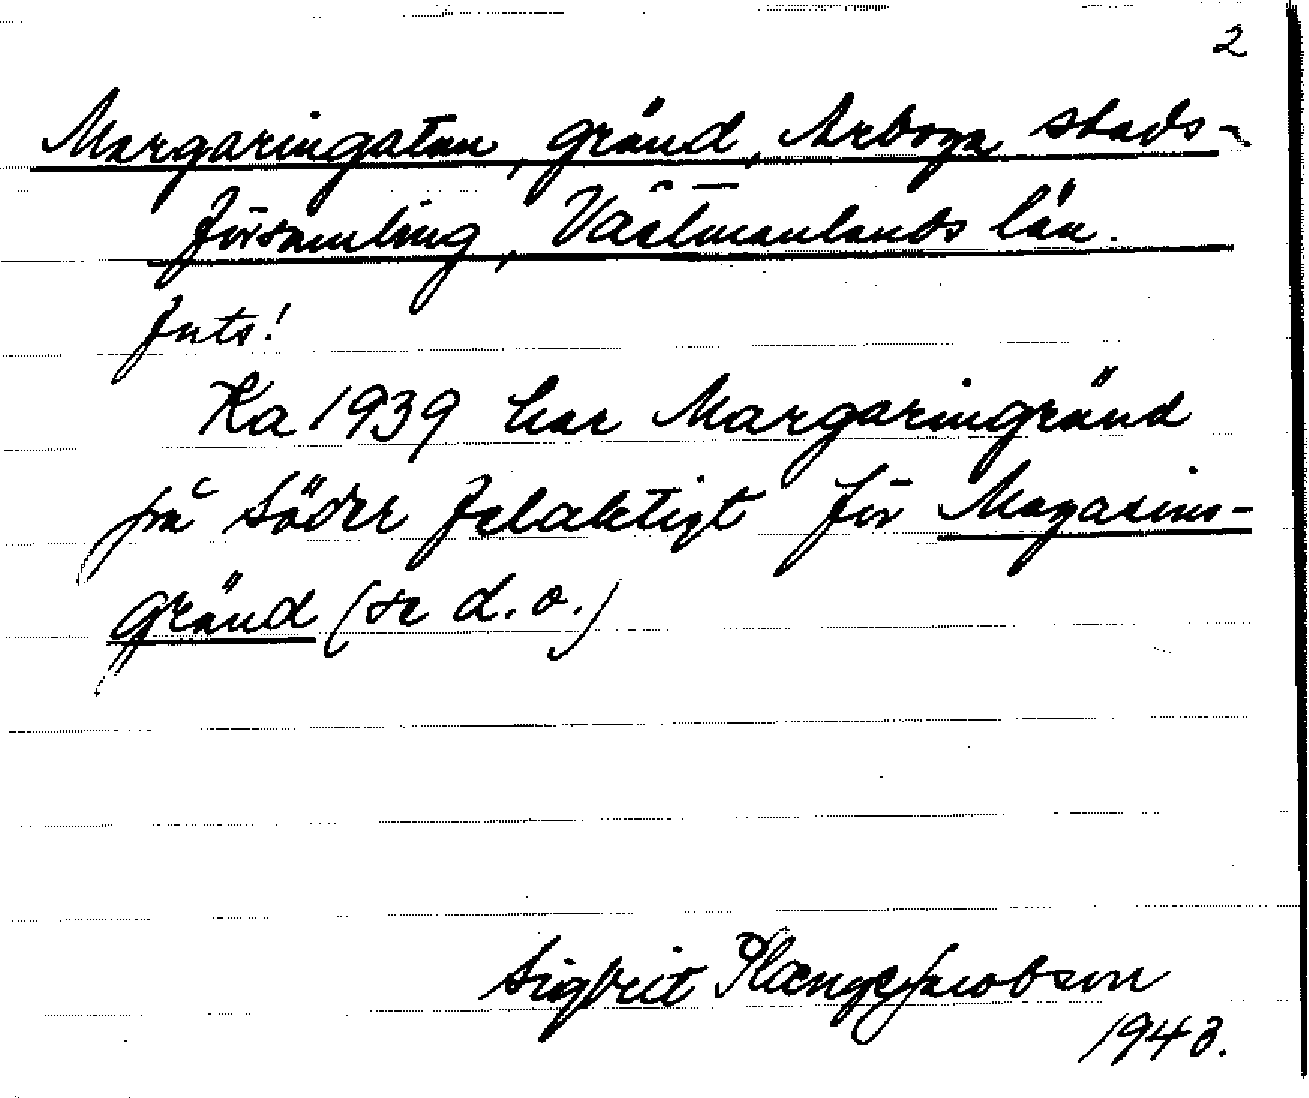 2
Margaringatan, gränd, Arboga stads-
församling, Västmanlands län.
Ka 1939 har Margaringränd
på Söder felaktigt för Magasins-
gränd (se d.o.)
Sigbrit Plænge Jacobson
1943.